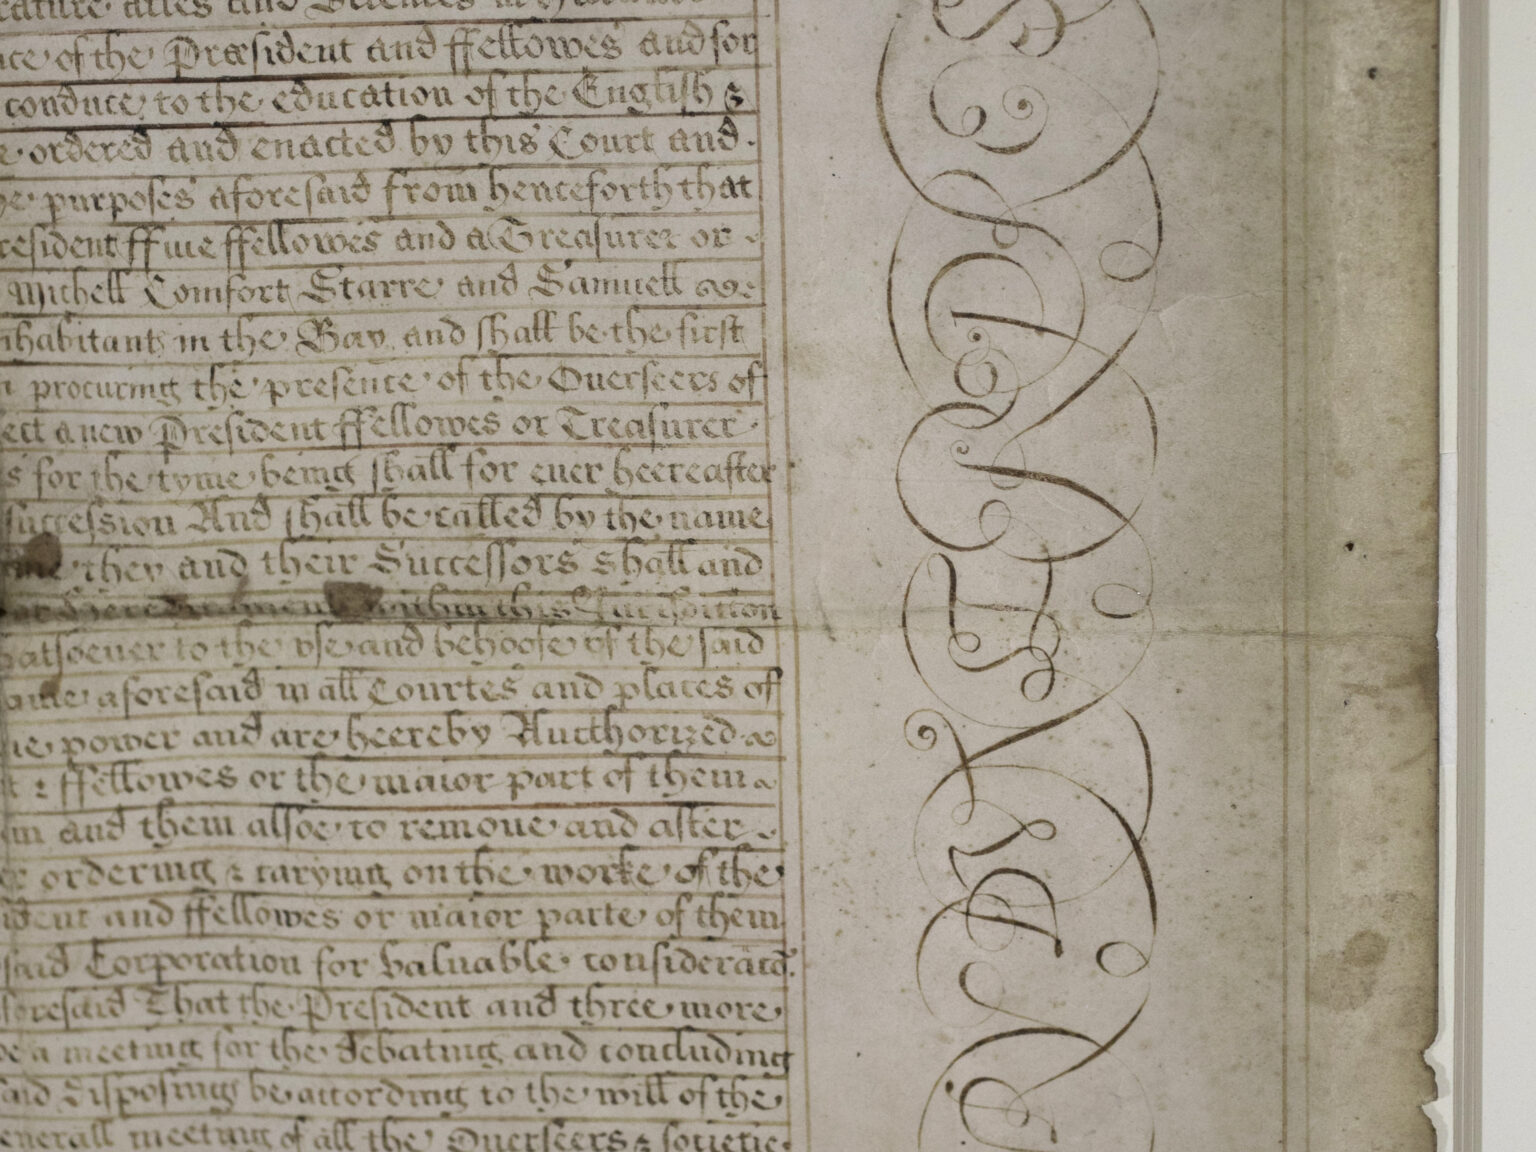 rature artes and Sciences in Harvard
nce of the Præsident and ffellowes and for
conduce to the education of the English &
e ordered and enacted by this Court and
he purposes aforesaid from henceforth that
resident ffiue ffellowes and a Treasurer or
Michell Comfort Starre and Samuell
nhabitants in the Bay and shall be the first
n procuring the presence of the Ouerseers of
lect a new President ffellowes or Treasurer
s for the tyme being shall for euer heereafter
succession And shall be called by the name
they and their Successors shall and
or Hereditament within this Jurisdiction
hatsoeuer to the vse and behoofe of the said
ame aforesaid in all Courtes and places of
ue power and are heereby Aucthorized
t & ffellowes or the maior part of them
im and them allsoe to remoue and after
er ordering & carying on the worke of the
sident and ffellowes or maior parte of them
said Corporation for valuable consideratō
aforesaid That the President and three more
be a meeting for the debating and concluding
said disposing be according to the will of the
enerall meeting of all the Ouerseers & societie